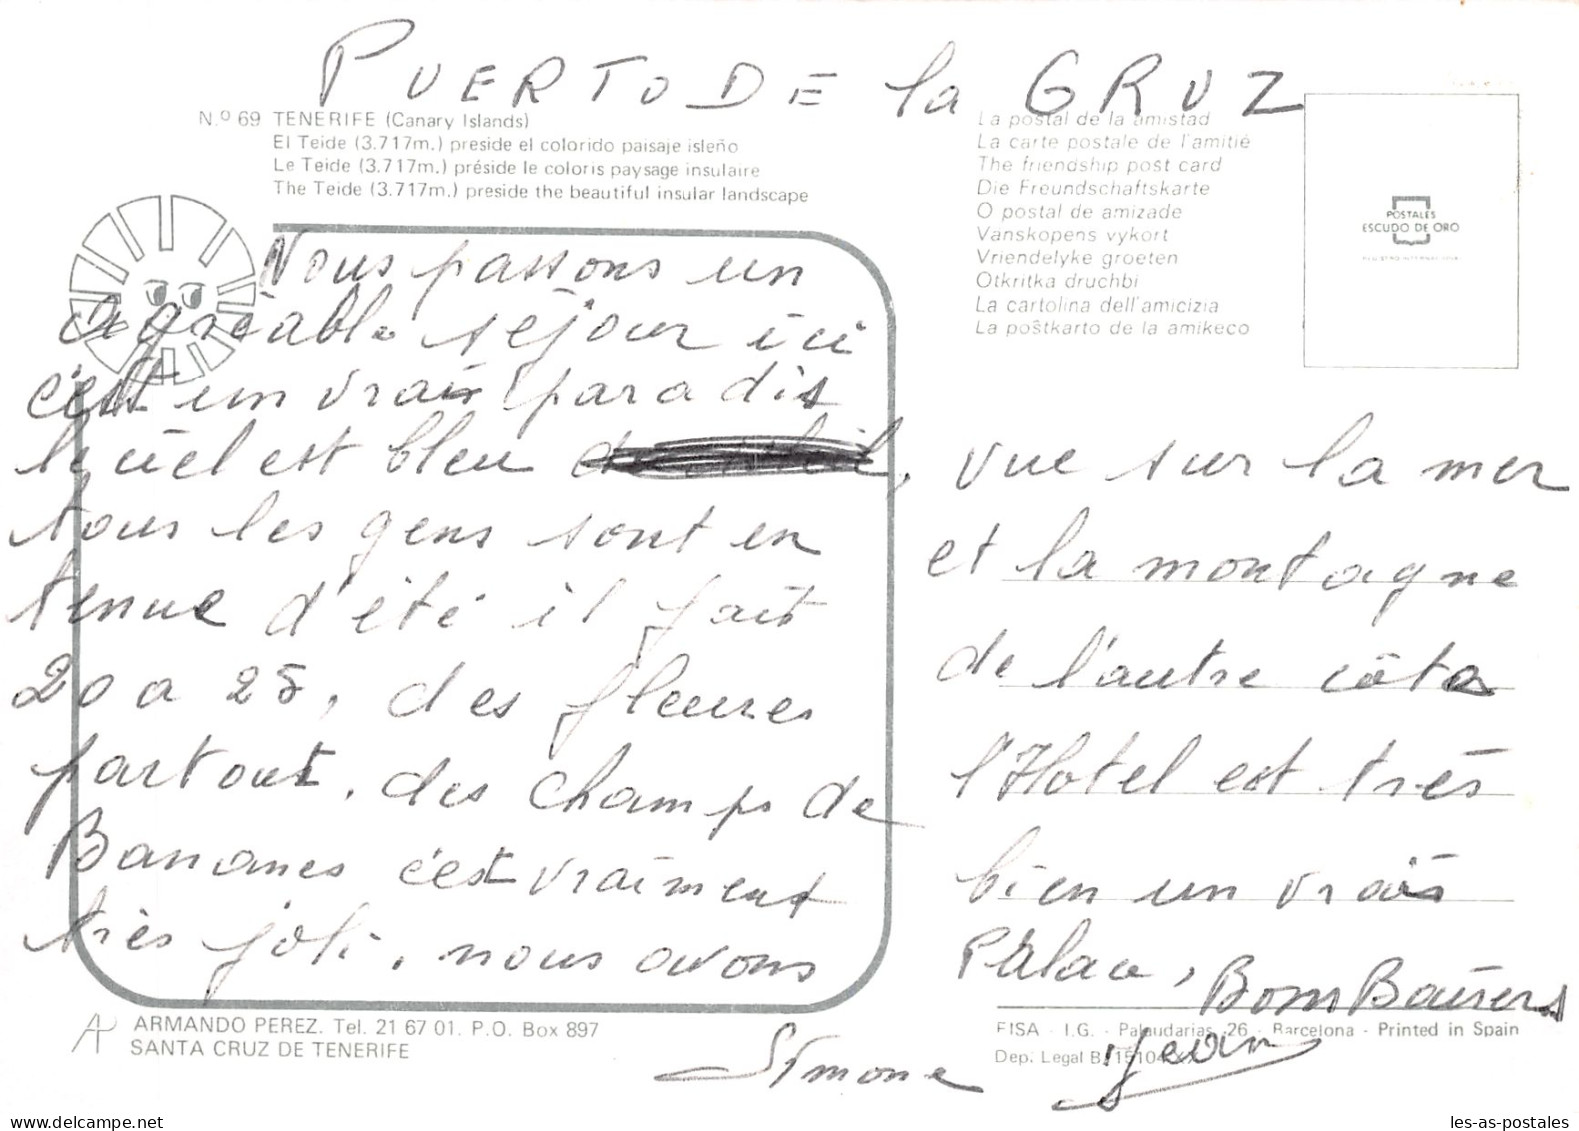 PUERTO DE la GRUZ
N.º 69 TENERIFE (Canary Islands)
El Teide (3.717m.) preside el colorido paisaje isleño
Le Teide (3.717m.) préside le coloris paysage insulaire
The Teide (3.717m.) preside the beautiful insular landscape
La postal de la amistad
La carte postale de l'amitié
The friendship post card
Die Freundschaftskarte
O postal de amizade
Vanskopens vykort
Vriendelyke groeten
Otkritka druchbi
La cartolina dell'amicizia
La poŝtkarto de la amikeco
POSTALES
ESCUDO DE ORO
Nous passons un
agréable séjour ici
c'est un vrais paradis
le ciel est bleu
tous les gens sont en
tenue d'été il fait
20 a 25, des fleures
partout, des champs de
Bananes c'est vraiment
très joli, nous avons
vue sur la mer
et la montagne
de l'autre côté
l'Hotel est très
bien un vrais
Palace, Bons Baisers
Simone Jean
ARMANDO PEREZ. Tel. 21 67 01. P.O. Box 897
SANTA CRUZ DE TENERIFE
FISA - I.G. - Palaudarias, 26 - Barcelona - Printed in Spain
Dep. Legal B.
les-as-postales